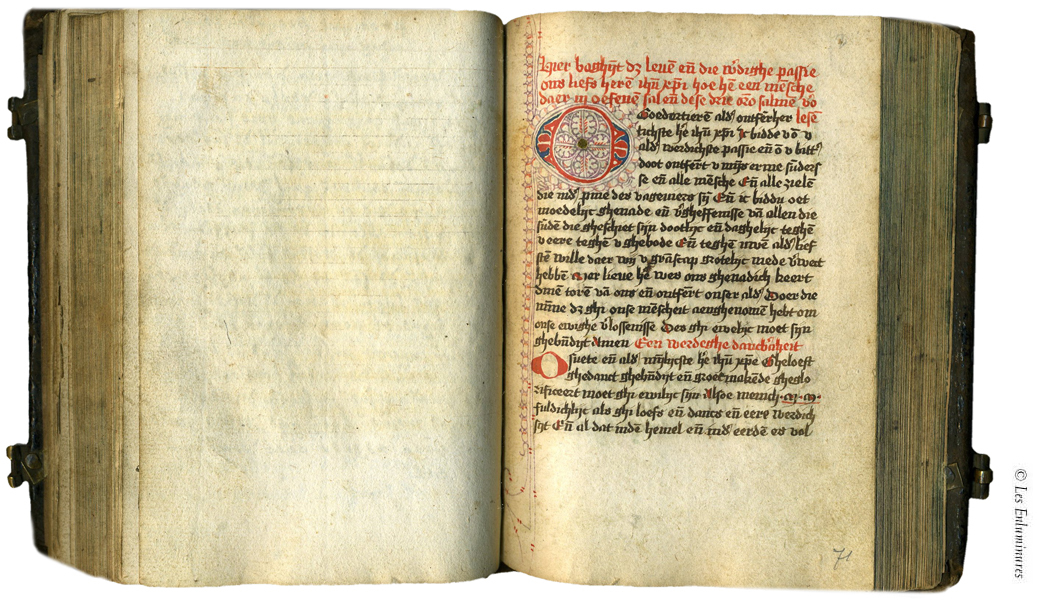 Hier beghīt dz leuē eñ die w̄dighe passie
ons liefs herē ihū xp̄i hoe hē een mēsche
daer in oefenē sal eñ dese drie
Goedertierē ald' ontfērher lesē
lichste h'e ihū xp̄i Ic bidde
ald' werdichste passie eñ
doot ontfērt v mijs erme sūders
se eñ alle mēsche Eñ alle zielē
die des vageviers sij Eñ ic bidde oet
moedelijc ghenade eñ v'gheffenisse vā allen die
sūdē die gheschiet sijn dootlijc eñ daghelijc teghē
v eere teghē v ghebode Eñ teghē uwē ald' lief
stē wille daer wij v grāscap grotelijc mede v'wect
hebbē Mer lieue h'e wes ons ghenadich keert
torē vā ons eñ ontfērt onser ald' Doer die
mīne dz ghi onse mēscheit aenghenomē hebt om
onse ewighe v'lossenisse Des ghi ewelijc moet sijn
ghebn̄dijt Amen Een werdeghe dancb'aheit
O suete eñ ald' h'e ihū xp̄e Gheloeft
ghedanct ghebn̄dijt eñ groet makēde gheglo
rificeert moet ghi ewilijc sijn Alsoe menich
fuldichlijc als ghi loefs eñ dancs eñ eere werdich
sijt Eñ al dat indē hemel eñ eerdē es vol
71
© Les Enluminures